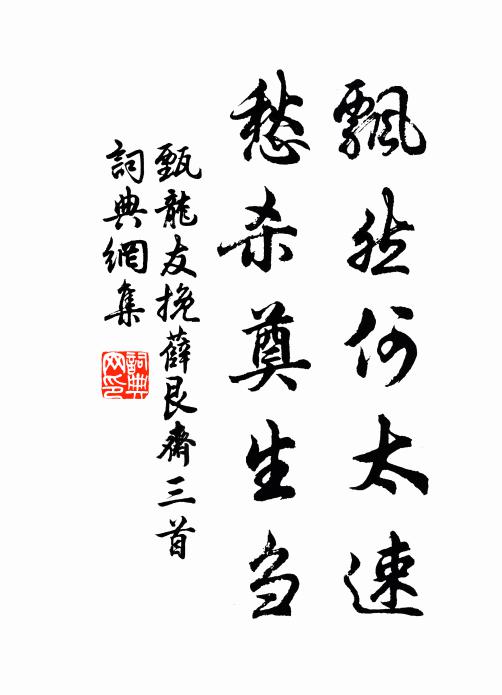 飄然何太速
愁杀奠生刍
甄龍友挽薛艮齋三首
詞典網集
詞典
网印